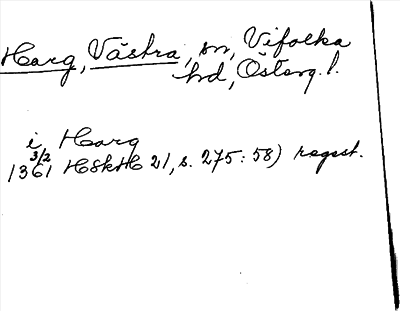 Harg, Västra, sn, Vifolka
hd, Österg.l.
i Harg
3/2
1361 HSkH 21, s. 275: 58) regest.